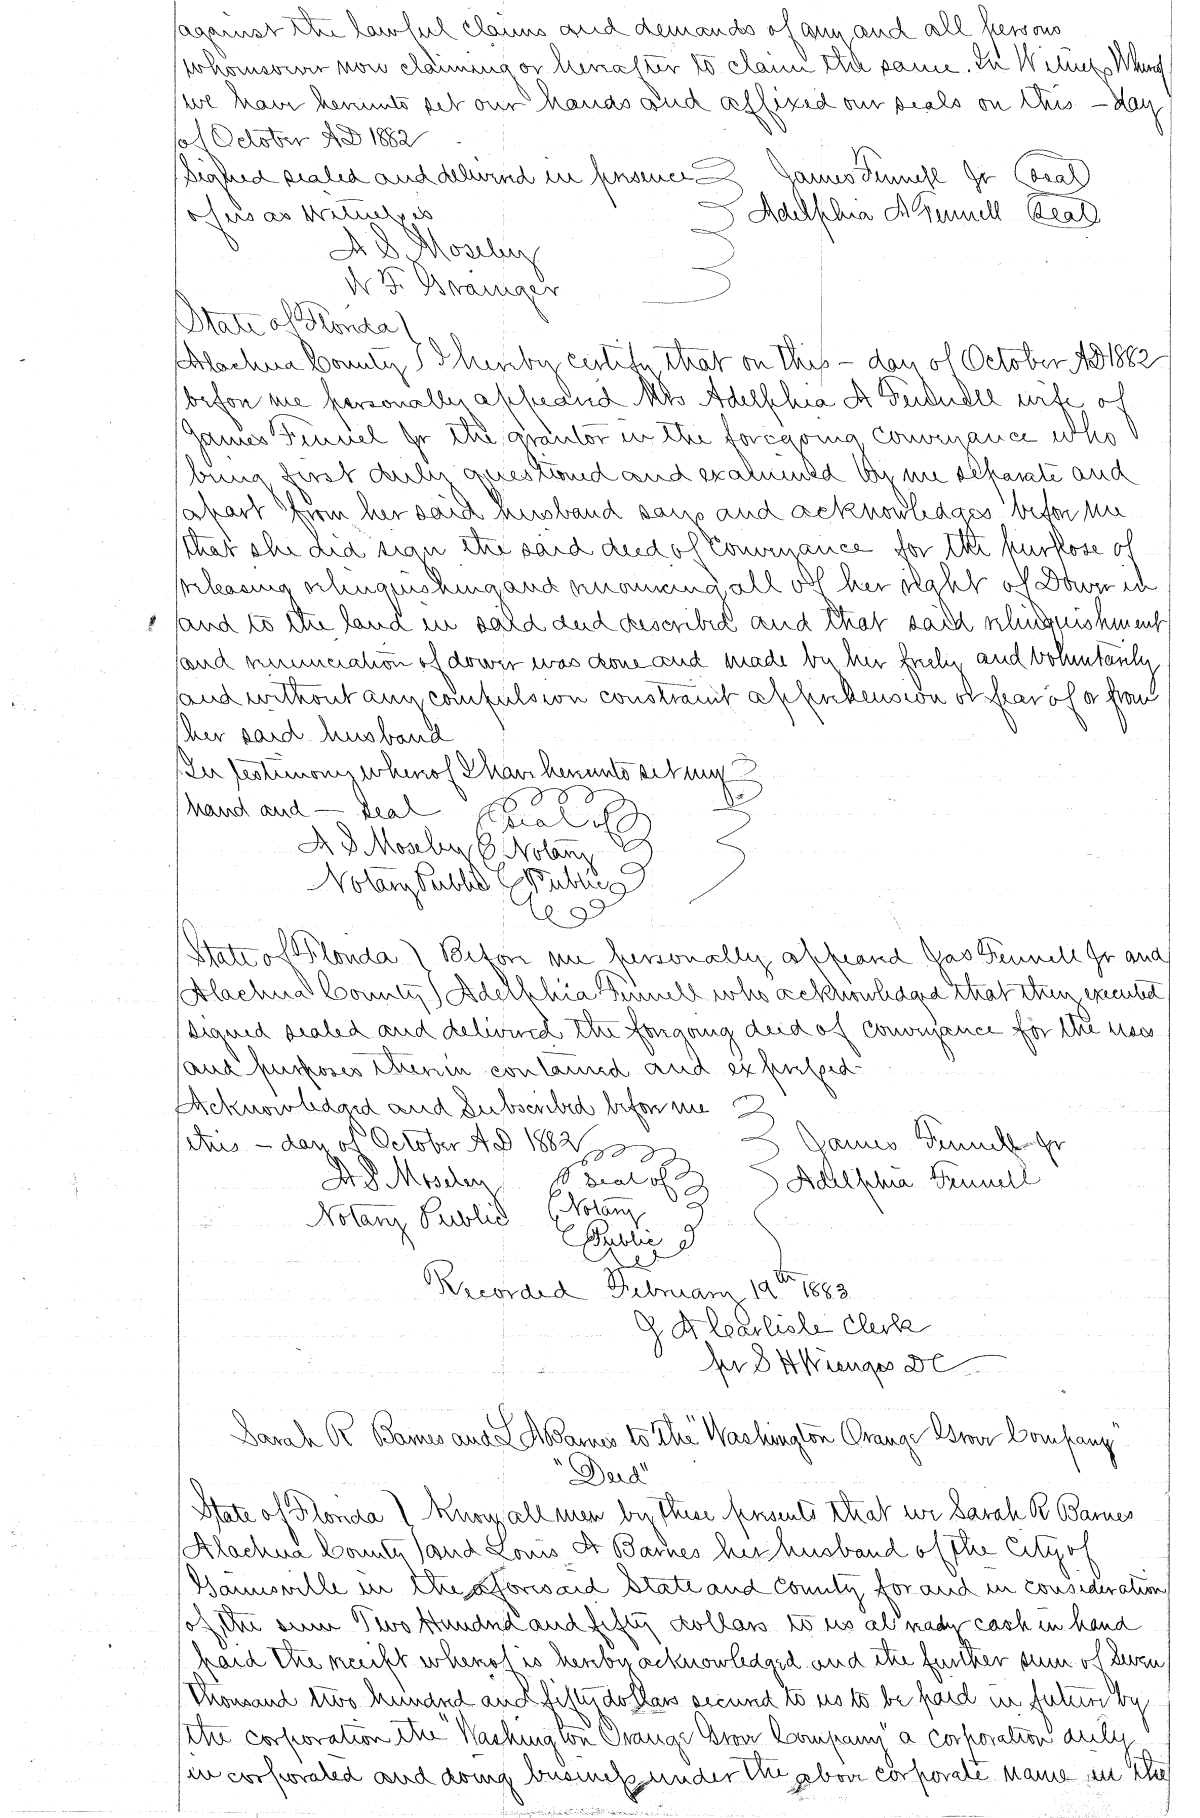 against the lawful claims and demands of any and all persons
whomsoever now claiming or hereafter to claim the same. In Witness Whereof
we have hereunto set our hands and affixed our seals on this - day
of October AD 1882
Signed sealed and delivered in presence James Fennell Jr (Seal)
of us as Witnesses Adelphia A Fennell (Seal)
A S Moseley
W F Grainger
State of Florida )
Alachua County ) I hereby certify that on this - day of October AD 1882
before me personally appeared Mrs Adelphia A Fennell wife of
James Fennel Jr the grantor in the foregoing conveyance who
being first duly questioned and examined by me separate and
apart from her said husband says and acknowledges before me
that she did sign the said deed of conveyance for the purpose of
releasing relinquishing and renouncing all of her right of Dower in
and to the land in said deed described and that said relinquishment
and renunciation of dower was done and made by her freely and voluntarily
and without any compulsion constraint apprehension or fear of or from
her said husband
In testimony whereof I have hereunto set my
hand and - seal Seal of
A S Moseley Notary
Notary Public Public
State of Florida ) Before me personally appeared Jas Fennell Jr and
Alachua County ) Adelphia Fennell who acknowledged that they executed
signed sealed and delivered the forgoing deed of conveyance for the uses
and purposes therein contained and expressed
Acknowledged and Subscribed before me
this - day of October AD 1882 James Fennell Jr
A S Moseley Seal of Adelphia Fennell
Notary Public Notary
Public
Recorded February 19th 1883
J A Carlisle Clerk
per S H Wienges DC
Sarah R Barnes and L A Barnes to the "Washington Orange Grove Company"
"Deed"
State of Florida ) Know all men by these presents that we Sarah R Barnes
Alachua County ) and Louis A Barnes her husband of the City of
Gainesville in the aforesaid State and County for and in consideration
of the sum Two Hundred and fifty dollars to us already cash in hand
paid the receipt whereof is hereby acknowledged and the further sum of Seven
Thousand two hundred and fifty dollars secured to us to be paid in future by
the corporation the "Washington Orange Grove Company" a corporation duly
incorporated and doing business under the above corporate name in the